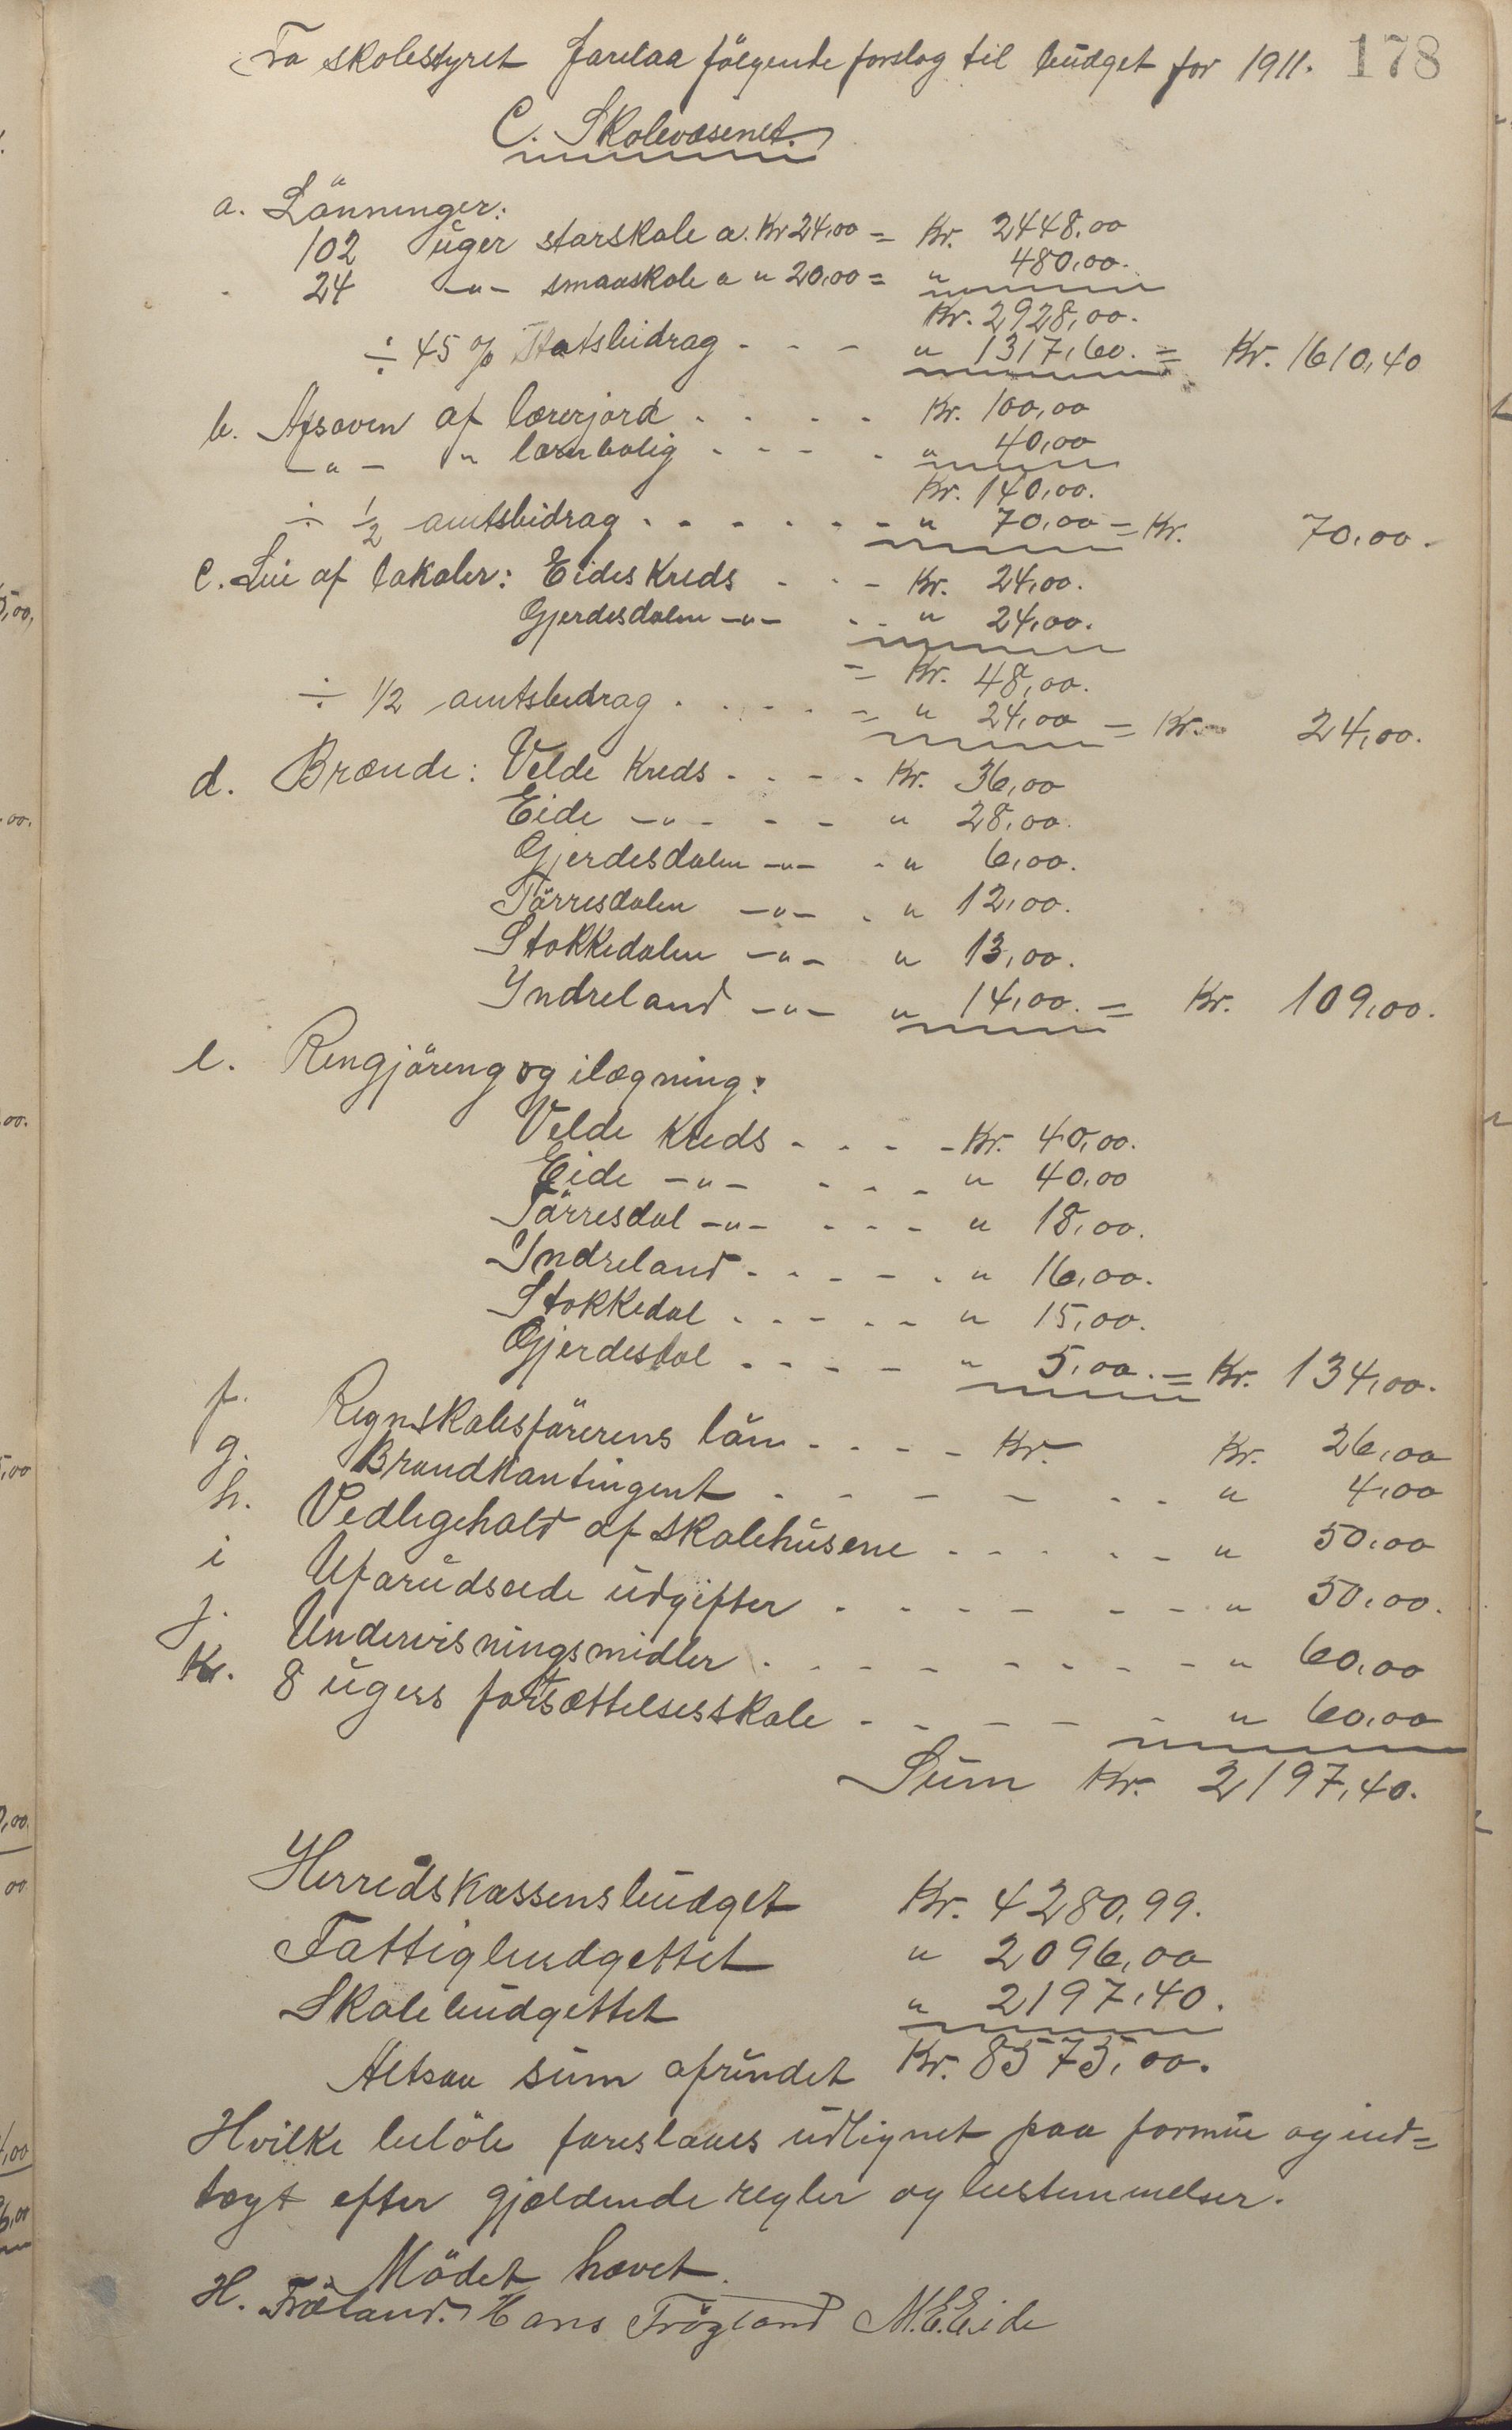 Fra skolestyret forelaa fölgende forslag til budget for 1911. 178
C. Skolevæsenet.
a. Lönninger:
102 uger storskole a. Kr 24,00 = Kr. 2448,00
24 -"- smaaskole a " 20,00 = " 480,00.
Kr. 2928,00.
÷ 45 % Statsbidrag - - - " 1317,60. = Kr. 1610,40
b. Afsavn af lærerjord - - - - Kr. 100,00
-"- " lærerbolig - - - - " 40,00
Kr. 140,00.
÷ 1/2 amtsbidrag - - - - - - " 70,00 = Kr. 70,00.
c. Leie af lokaler: Eides Kreds - - - Kr. 24,00.
Gjerdesdalen -"- - - " 24,00.
= Kr. 48,00.
÷ 1/2 amtsbidrag - - - - = " 24,00 = Kr. 24,00.
d. Brænde: Velde Kreds - - - - Kr. 36,00
Eide -"- - - " 28,00.
Gjerdesdalen -"- - " 6,00.
Törresdalen -"- - " 12,00.
Stokkedalen -"- " 13,00.
Yndreland -"- " 14,00. = Kr. 109,00.
e. Rengjöring og ilægning:
Velde Kreds - - - - Kr. 40,00.
Eide -"- - - - " 40,00
Törresdal -"- - - - " 18,00.
Yndreland - - - - - " 16,00.
Stokkedal - - - - - " 15,00.
Gjerdesdal - - - - " 5,00. = Kr. 134,00.
f. Regnskabsförerens lön - - - - Kr. Kr. 26,00
g. Brandkontingent - - - - - - " 4,00
h. Vedligehold af skolehusene - - - - - " 50,00
i Uforudseede udgifter - - - - - - " 50,00.
j. Undervisningsmidler - - - - - - - - " 60,00
k. 8 ugers fortsættelsesskole - - - - - " 60,00
Sum Kr. 2197,40.
Herredskassensbudget Kr. 4280,99.
Fattigbudgettet " 2096,00
Skolebudgettet " 2197,40.
Altsaa sum afrundet Kr. 8575,00.
Hvilke belöb foreslaaes udlignet paa formue og ind=
tægt efter gjældende regler og bestemmelser.
Mödet hævet.
H. Fröland. Hans Frögland M. E. Eide